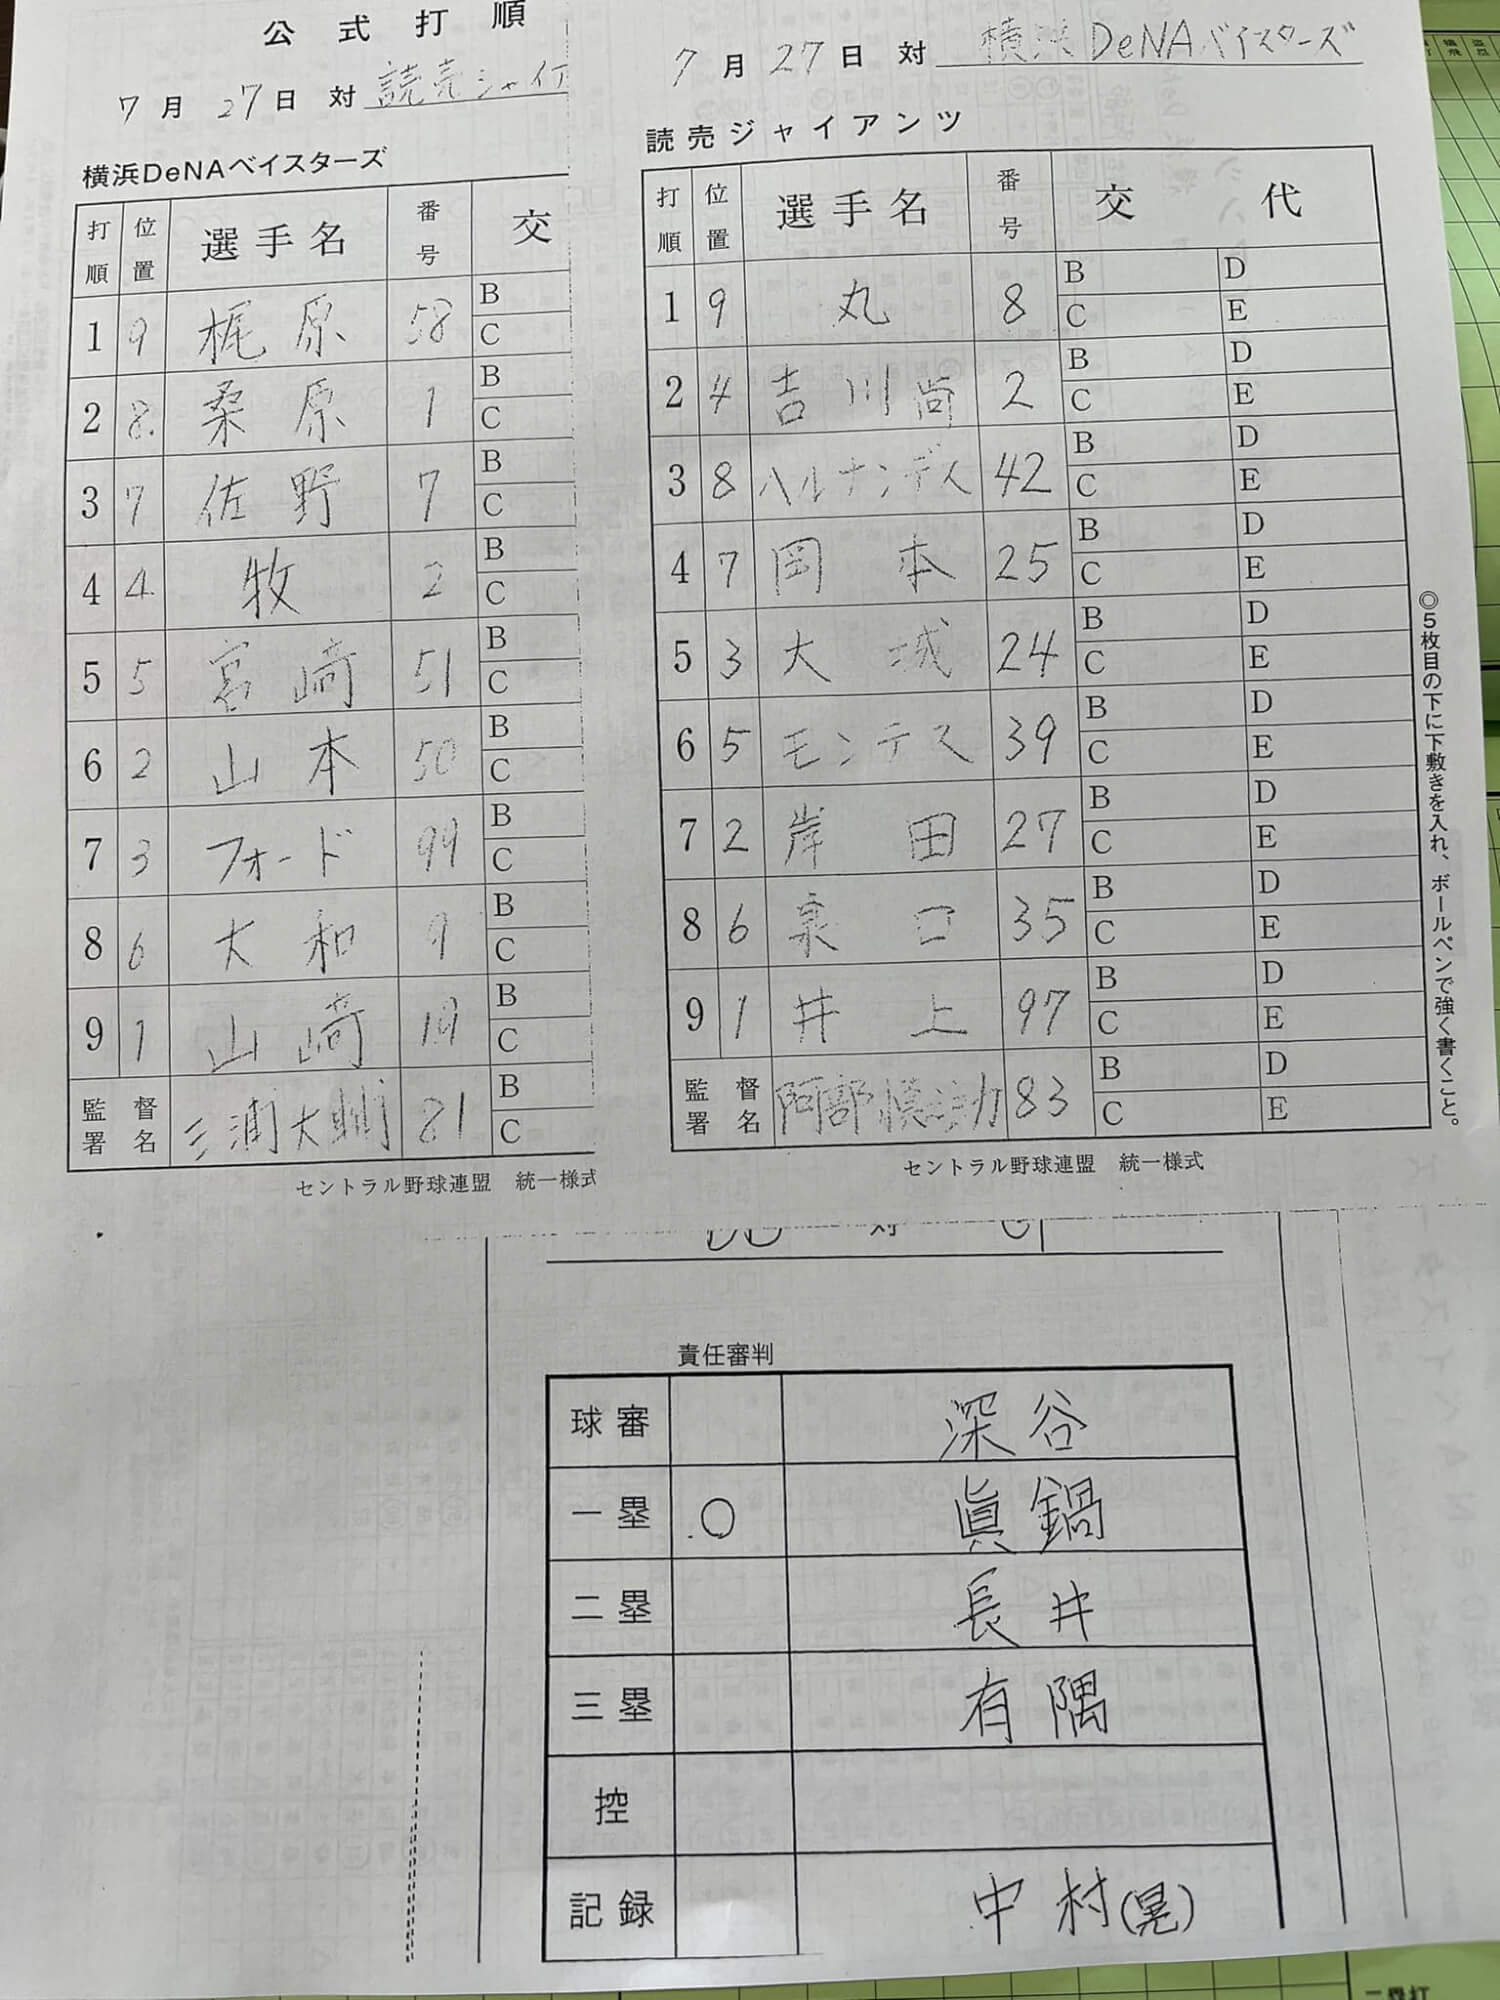 公式打順
7月27日 対 読売ジャイア
横浜DeNAベイスターズ
打順 位置 選手名 番号 交
1 9 梶原 58 B C
2 8 桑原 1 B C
3 7 佐野 7 B C
4 4 牧 2 B C
5 5 宮﨑 51 B C
6 2 山本 50 B C
7 3 フォード 99 B C
8 6 大和 9 B C
9 1 山﨑 19 B C
監督署名 三浦大輔 81 B C
セントラル野球連盟 統一様式
7月27日 対 横浜DeNAベイスターズ
読売ジャイアンツ
打順 位置 選手名 番号 交代
1 9 丸 8 B D C E
2 4 吉川尚 2 B D C E
3 8 ヘルナンデス 42 B D C E
4 7 岡本 25 B D C E
5 3 大城 24 B D C E
6 5 モンテス 39 B D C E
7 2 岸田 27 B D C E
8 6 泉口 35 B D C E
9 1 井上 97 B D C E
監督署名 阿部慎之助 83 B D C E
セントラル野球連盟 統一様式
◎5枚目の下に下敷きを入れ、ボールペンで強く書くこと。
責任審判
球審 深谷
一塁 ○ 眞鍋
二塁 長井
三塁 有隅
控
記録 中村(晃)
二塁打